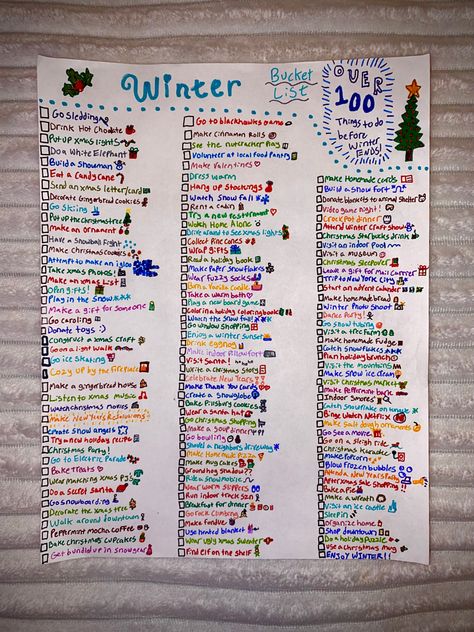 Winter
Bucket List
OVER 100 Things to do before Winter ENDS!
Go Sledding
Drink Hot Chocolate
Put up xmas lights
Do a White Elephant
Build a Snowman
Eat a Candy Cane
Send an xmas letter/card
Decorate Gingerbread Cookies
Go Skiing
Put up the christmas tree
Make an ornament
Have a Snowball Fight
Make Christmas Cookies
Attempt to make an igloo
Take xmas Photos!
Make an xmas List
Open gifts!
Play in the Snow
Make a gift for someone
Go caroling
Donate toys :)
Construct a xmas Craft
Go on a light walk
Go ice skating
Cozy up by the fireplace
Make a gingerbread house
Listen to xmas music
Watch christmas movies
Make New Years Resolutions
Create snow angels
Try a new holiday recipe
Christmas Party!
Go to Electric Parade
Bake treats
Wear matching xmas PJs
Do a secret santa
Go Snowboarding
Decorate the xmas tree
Walk around downtown
Peppermint mocha coffee
Bake Christmas cupcakes
Get bundled up in snow gear
Go to blackhawks game
Make Cinnamon Rolls
See the nutcracker play
Volunteer at local food pantry
Make Valentines
Dress warm
Hang up Stockings
Watch Snow fall
Rent a cabin
Try a new restaurant
Watch Home Alone
Drive around to see xmas lights
Collect Pine cones
Wrap Gifts
Read a holiday book
Make Paper Snowflakes
Wear fuzzy socks
Burn a Vanilla candle
Take a warm bath
Play a new board game
Color in a holiday coloring book
Watch the snow fall
Go window shopping
Enjoy a winter sunset
Drink eggnog
Make indoor pillow fort
Visit Santa!
Write a christmas story
Celebrate New Years
Make Thank You Cards
Create a snowglobe
Bake Pillsbury cookies
Wear a santa hat
Go Christmas shopping
Make a soup dinner
Go bowling
Shovel a neighbors driveway
Make Homemade Pizza
Make mug cakes
Groundhog Shadow??
Ride a snowmobile
Wear warm slippers
Run indoor track 5k
Breakfast for dinner
Go rock Climbing
Make fondue
Use heated blanket
Wear ugly xmas sweater
Find elf on the shelf
Make Homemade cards
Build a snow fort
Donate blankets to animal shelter
Video game night!
Crock pot dinner
Attend Winter craft show
Christmas Starbucks drink
Visit an indoor Pool
Visit a museum
Christmas sleepover
Leave a gift for mail carrier
Trip to New York City
Start an advent calendar
Make homemade bread
Winter Photo shoot
Dance Party!
Go snow tubing
Visit a tree farm
Make homemade Fudge
Catch snowflakes
Plan holiday brunch
Visit the mountains
Make Snow ice cream
Visit Christmas market
Make Peppermint bark
Indoor Smores
Catch Snowflake on tongue
Binge Watch Netflix
Make salt dough ornaments
Go see a movie
Go on a sleigh ride
Christmas Karaoke
Make Popcorn
Blow frozen bubbles
Attend a New Years Party
After xmas sale shopping
Bake a Pie
Make a wreath
Visit an ice castle
Sleep in
Organize home
Shop downtown
Do a holiday puzzle
Use a christmas mug
ENJOY WINTER!!